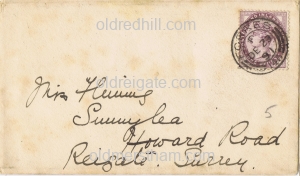 oldredhill.com
Miss Fleming
Sunnylea
oldreigate.com
Howard Road
Reigate. Surrey.
5